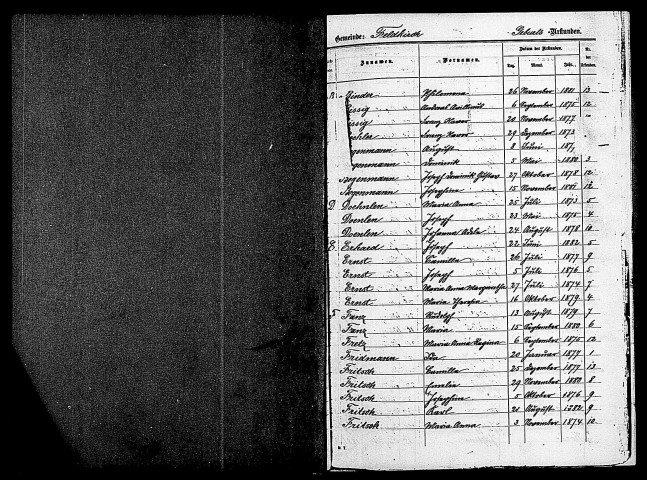 Gemeinde: Feldkirch Geburts-Urkunden.
Zunamen. Vornamen. Datum der Urkunden. Nr. der Urkunden.
Tag. Monat. Jahr.
B. Binder Philomena 26 November 1881 13
6 September 1875 12
Franz Xaver 20 November 1877
Franz Xaver 29 Dezember 1873
August 8 Juni 187
Dominik 5 Mai 1880 3
Josef Dominik Gustav 27 Oktober 1878 12
Josephina 15 November 1881 12
D. Doehnlen Maria Anna 25 Juli 1873 5
Doenlen Joseph 23 Mai 1875 4
Doenlen Johanna Adele 24 August 1878 10
E. Erhard Joseph 22 Juni 1882 5
Ernst Camilla 26 Juli 1877 9
Ernst Joseph 5 Juli 1876 5
Ernst Maria Anna Margaretha 27 Juli 1874 7
Ernst Maria 16 Oktober 1879 4
F. Fanz Rudolf 13 August 1879 7
Fanz Maria 15 September 1880 6
Fretz Maria Anna Regina 6 September 1875 12
Fridmann 20 Januar 1877 1
Fritsch Camilla 25 Dezember 1877 13
Fritsch Emelie 29 November 1880 8
Fritsch Josephine 5 Oktober 1876 9
Fritsch Karl 21 August 1882 9
Fritsch Maria Anna 3 November 1874 10